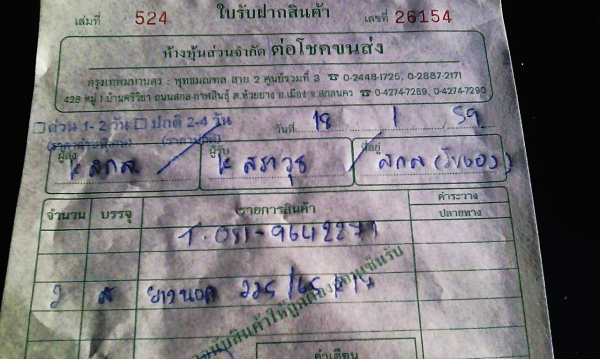 เล่มที่ 524 ใบรับฝากสินค้า เลขที่ 26154
ห้างหุ้นส่วนจำกัด ต่อโชคขนส่ง
กรุงเทพมหานคร : พุทธมณฑล สาย 2 ศูนย์รวมที่ 3 ☎ 0-2448-1725, 0-2887-2171
428 หมู่ 1 บ้านศรีวิชา ถนนสกล-กาฬสินธุ์ ต.ห้วยยาง อ.เมือง จ.สกลนคร ☎ 0-4274-7289, 0-4274-7290
ด่วน 1-2 วัน ปกติ 2-4 วัน วันที่ 18 1 59
ผู้ส่ง ผู้รับ ที่อยู่
สกล สราวุธ สกล
จำนวน บรรจุ รายการสินค้า ค่าระวาง
ปลายทาง
T. 081-9642271
2 ยางนอก 225/65/17
คำเตือน